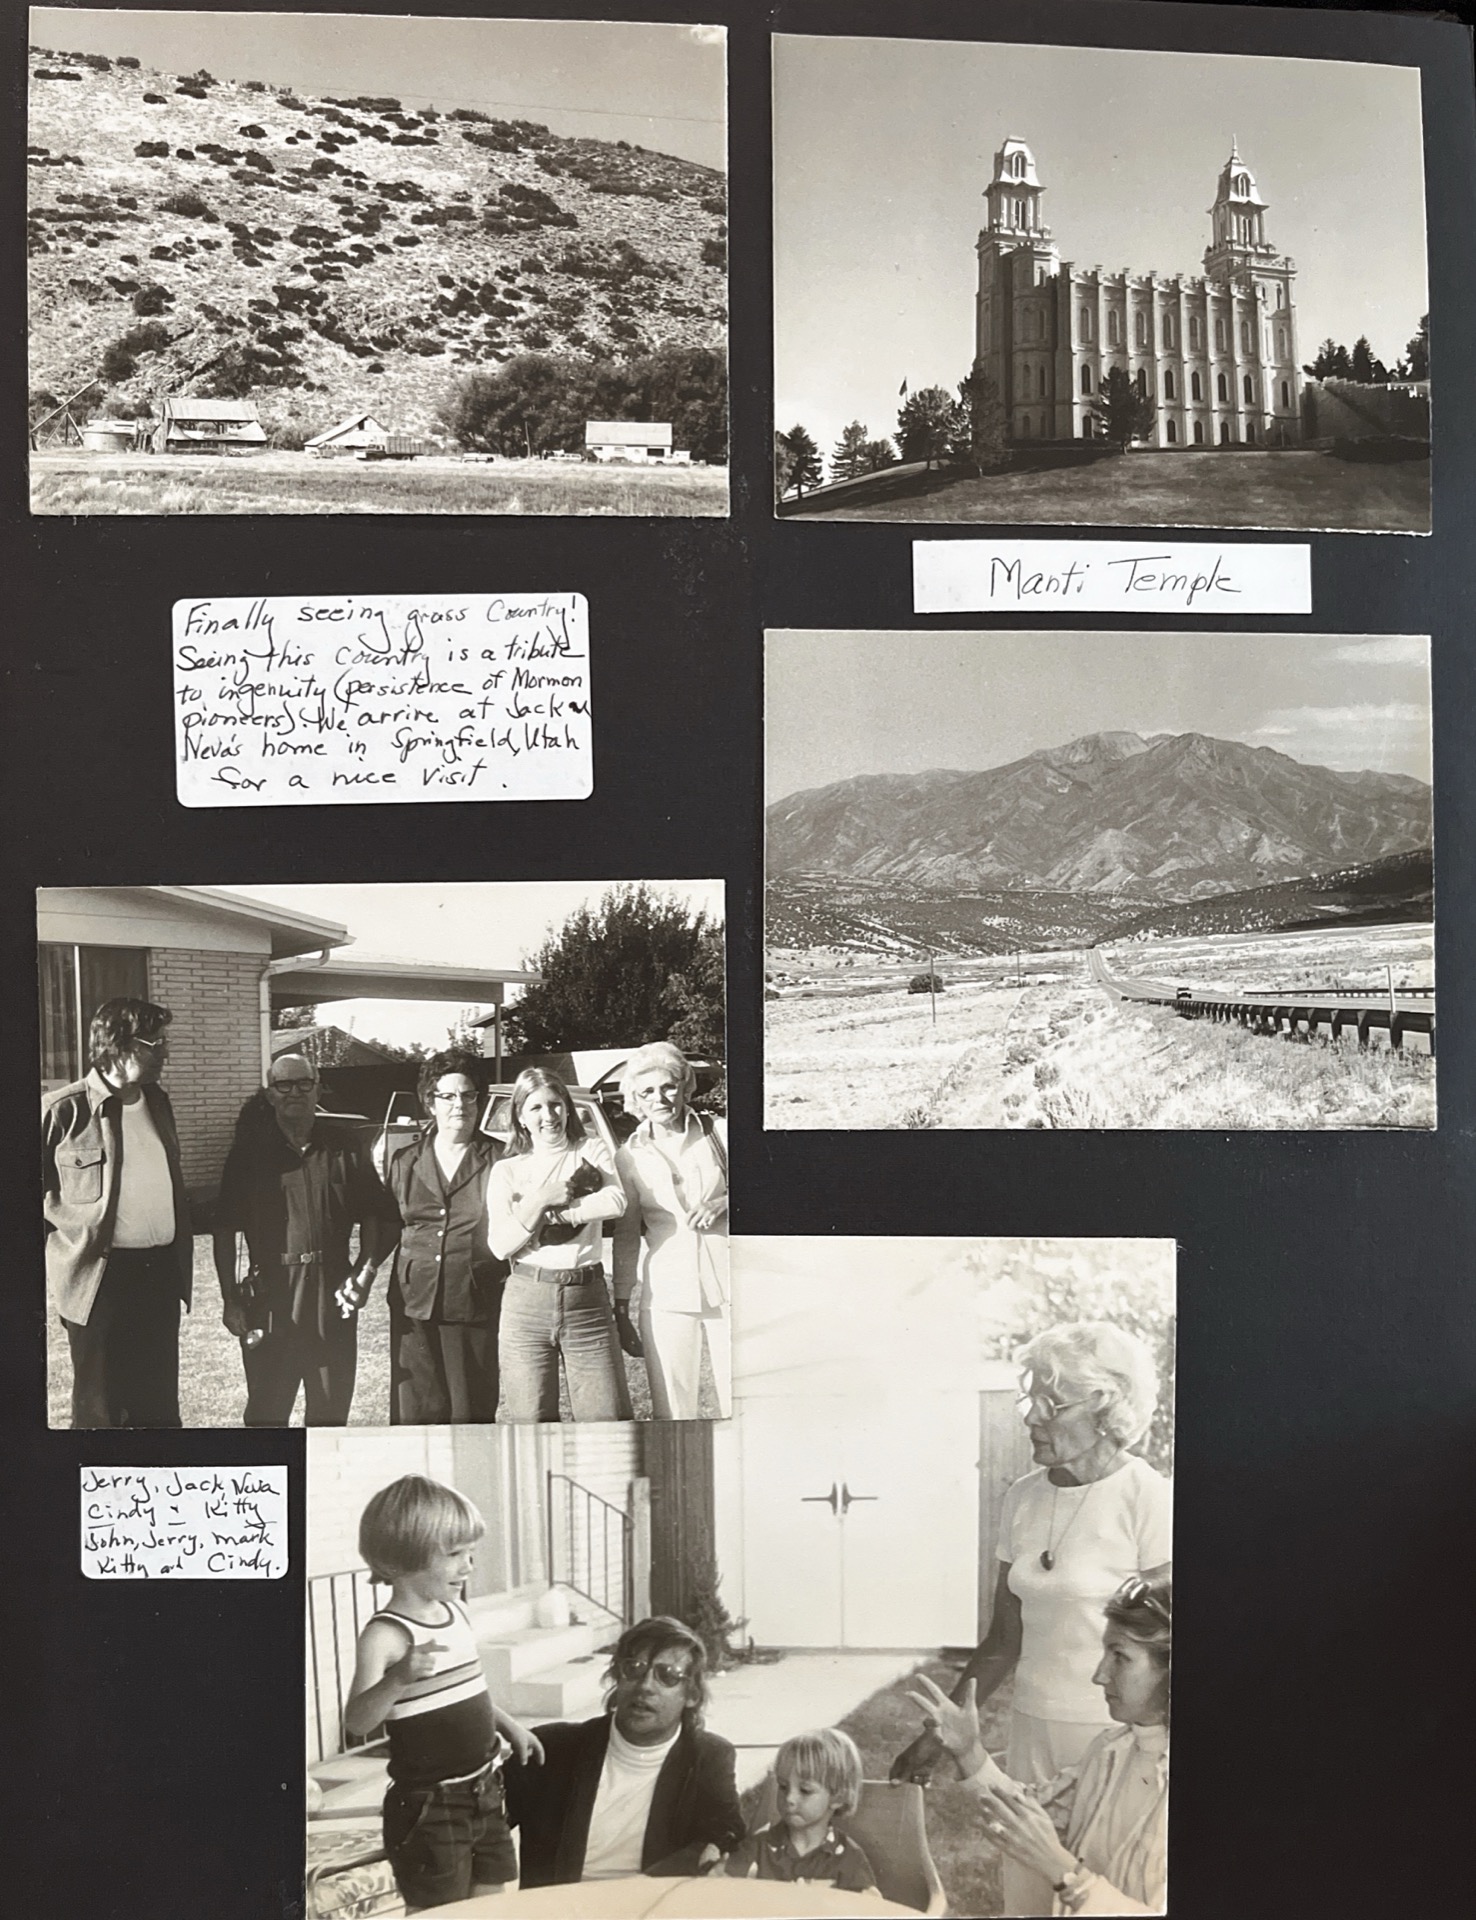 Manti Temple
Finally seeing grass Country!
Seeing this Country is a tribute
to ingenuity (persistence of Mormon
pioneers). We arrive at Jack &
Neva's home in Springfield, Utah
for a nice visit.
Jerry, Jack, Neva
Cindy & Kitty
John, Jerry, Mark
Kitty and Cindy.